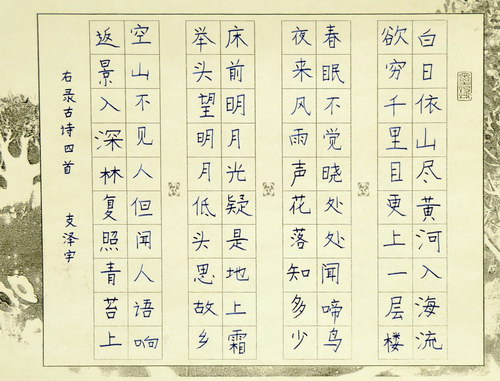 白日依山尽黄河入海流
欲穷千里目更上一层楼
春眠不觉晓处处闻啼鸟
夜来风雨声花落知多少
床前明月光疑是地上霜
举头望明月低头思故乡
空山不见人但闻人语响
返景入深林复照青苔上
右录古诗四首 支泽宇